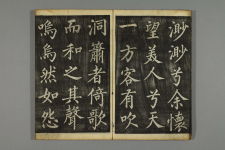 渺渺兮余懷
望美人兮天
一方客有吹
洞簫者倚歌
而和之其聲
嗚嗚然如怨